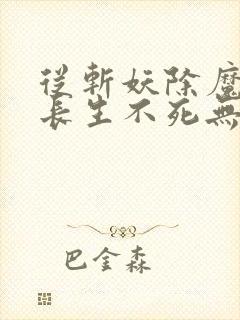 從斬妖除魔
長生不死無
巴金森